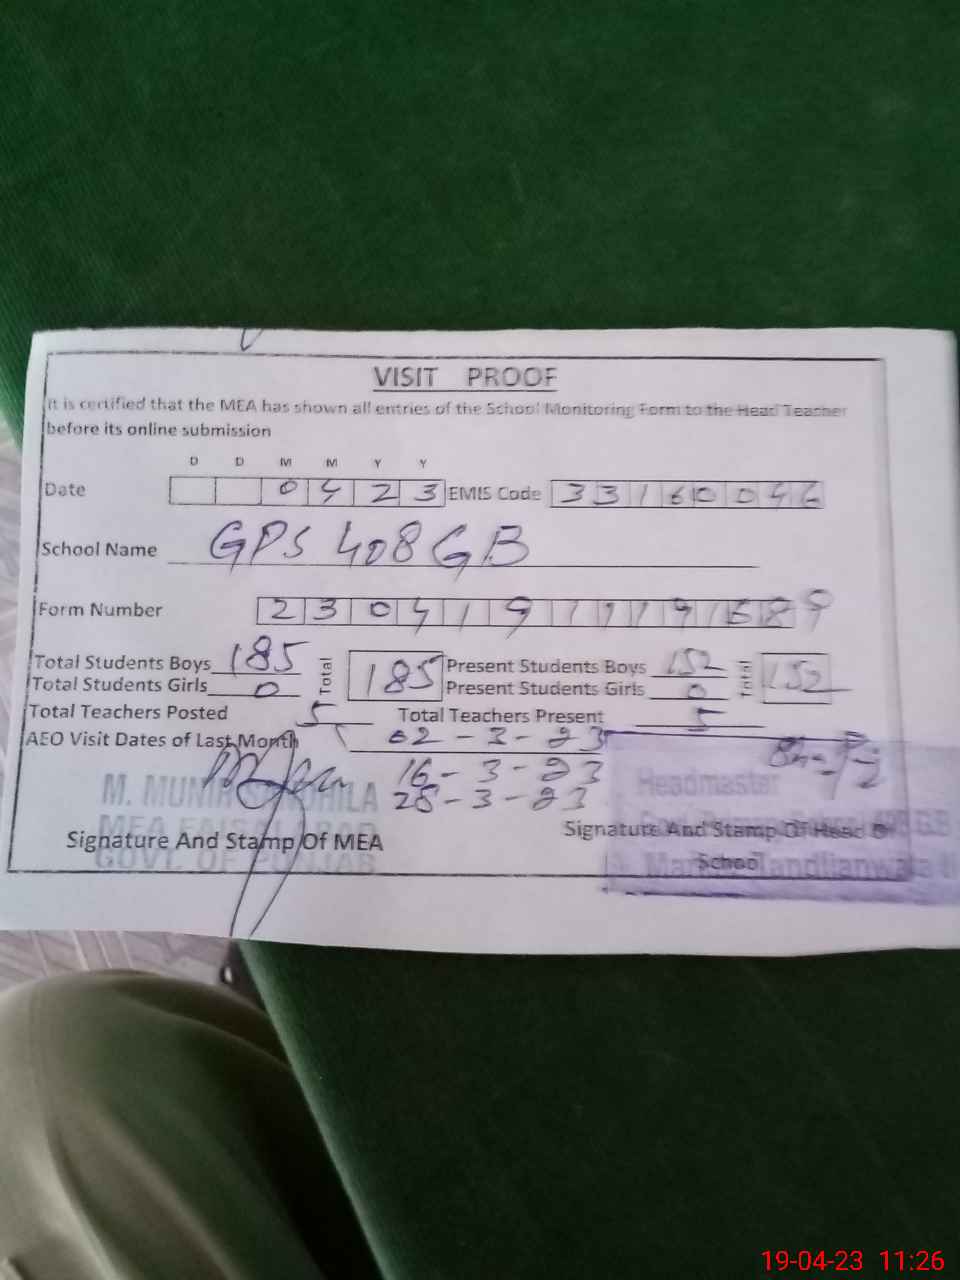 VISIT PROOF
It is certified that the MEA has shown all entries of the School Monitoring Form to the Head Teacher
before its online submission
D D M M Y Y
Date 0 4 2 3 EMIS Code 3 3 1 6 0 0 4 6
School Name GPS 408 GB
Form Number 2 3 0 4 1 9 1 1 1 9 1 6 8 9
Total Students Boys 185 Total 185 Present Students Boys 152 Total 152
Total Students Girls 0 Present Students Girls 0
Total Teachers Posted 5 Total Teachers Present 5
AEO Visit Dates of Last Month 02-3-23
16-3-23
28-3-23
Headmaster
M. MUNIR
MEA FAISALABAD
GOVT. OF PUNJAB
Signature And Stamp Of MEA
Signature And Stamp Of Head Of
School
Tandlianwala
19-04-23 11:26